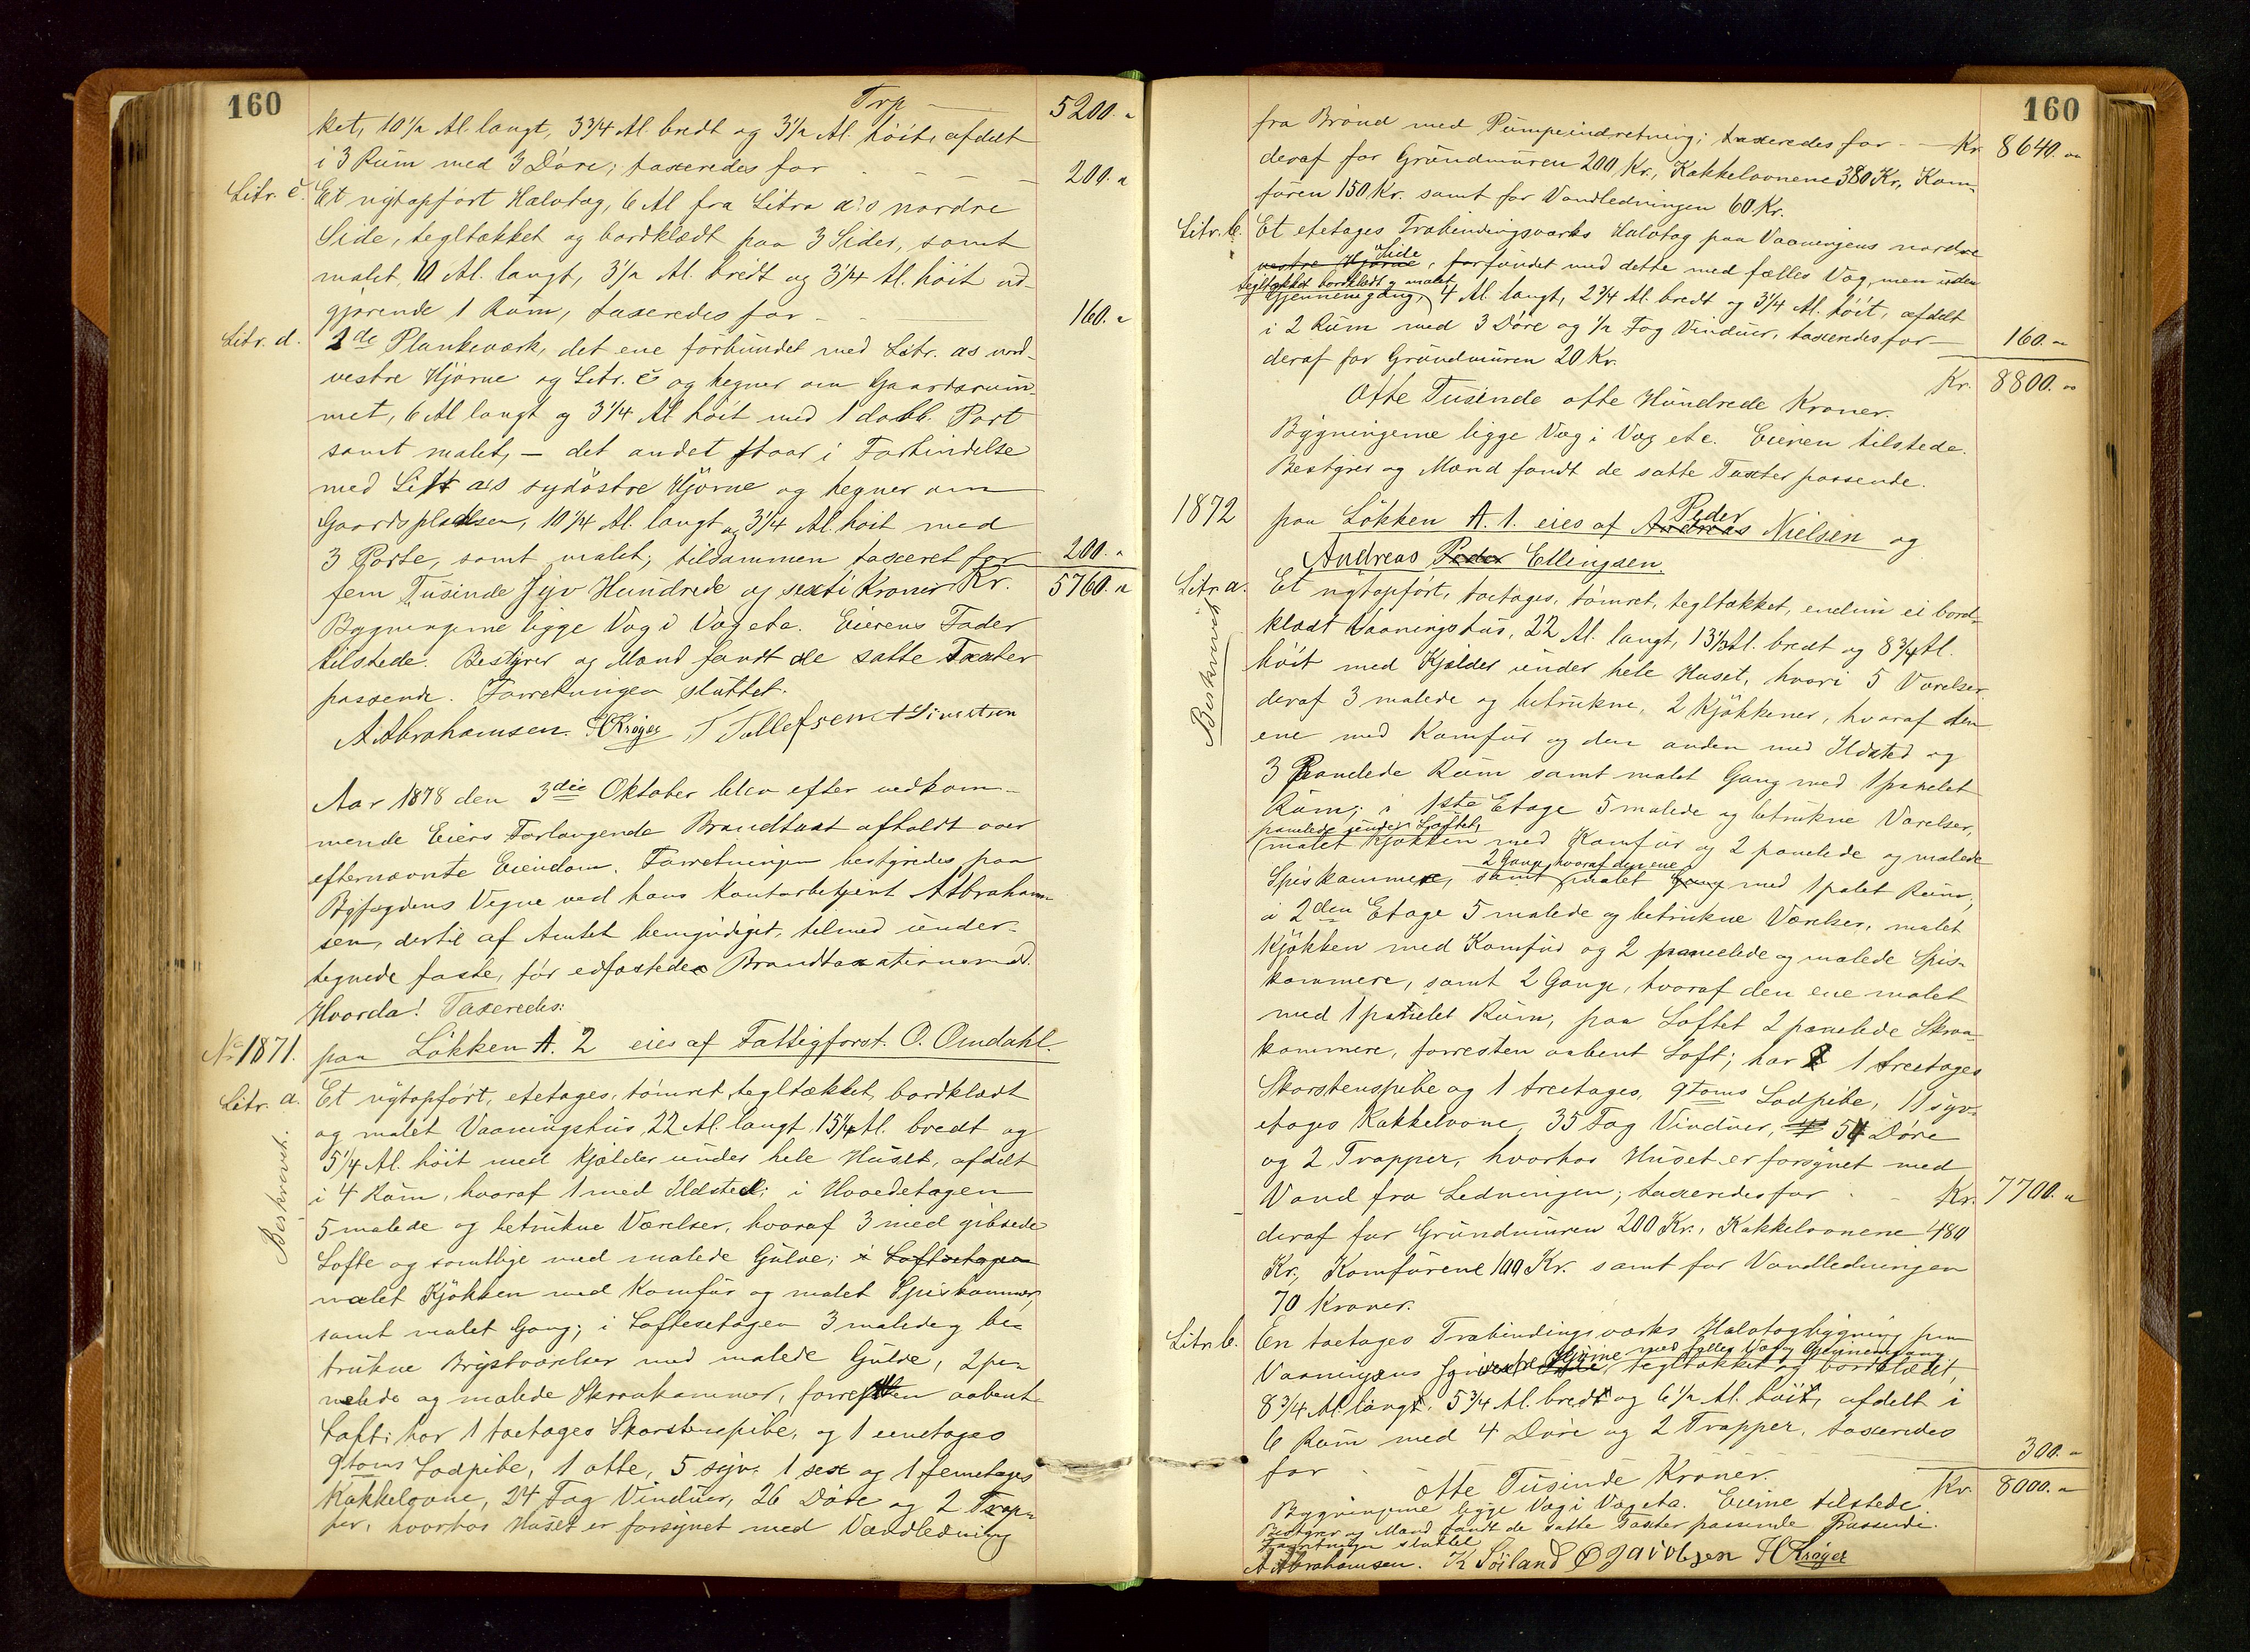 160
Trp — 5200. "
ket, 10 1/2 Al. langt, 3 3/4 Al. bredt og 3 1/2 Al. höit, afdelt
i 3 Rum med 3 Döre; taxeredes for - - - 200. "
Litr. c. Et nyt opfört Halvtag, 6 Al fra Litra a's nordre
Side, tegltækket og bordklædt paa 3 Sider, samt
malet, 10 Al. langt, 3 1/2 Al. bredt og 3 1/4 Al. höit ud-
gjørende 1 Rum, taxeredes for - - 160. "
Litr. d. 2de Plankeværk, det ene forbundet med Litr. as nord-
vestre Hjörne og Litr. c og hegner om Gaardsrum-
met, 6 Al langt og 3 1/4 Al höit med 1 dobb. Port
samt malet, — det andet staar i Forbindelse
med Litr as sydöstre Hjörne og hegner om
Gaardspladsen, 10 1/4 Al. langt og 3 1/4 Al. höit med
3 Porte, samt malet; tilsammen taxeret for 200. "
fem Tusinde Syv Hundrede og sexti Kroner Kr. 5760. "
Bygningerne ligge Væg i Væg etc. Eierens Fader
tilstede. Bestyrer og Mænd fandt de satte Taxter
passende. Forretningen sluttet.
A Abrahamsen. H Krøger T Tollefsen A Sivertsen
Aar 1878 den 3die Oktober blev efter vedkom-
mende Eiers Forlangende Brandtaxt afholdt over
efternævnte Eiendom. Forretningen bestyredes paa
Byfogdens Vegne ved hans Kontorbetjent A Abraham-
sen, dertil af Amtet bemyndiget, tilmed under-
tegnede faste, før edfæstede Brandtaxationsmænd.
Hvorda! Taxeredes:
No 1871. paa Lökken A. 2 eies af Fattigforst. O. Omdahl.
Litr. a. Et nyt opfört, etetages, tömret, tegltækket, bordklædt
og malet Vaaningshus, 22 Al. langt, 15 1/4 Al. bredt og
5 1/4 Al. höit med Kjælder under hele Huset, afdelt
Beskrevet.
i 4 Rum, hvoraf 1 med Ildsted; i Hovedetagen
5 malede og betrukne Værelser, hvoraf 3 med gibsede
Lofte og samtlige med malede Gulve; i Loftsetagen
malet Kjökken med Komfur og malet Spiskammer,
samt malet Gang; i Loftsetagen 3 malede og be-
trukne Brystværelser med malede Gulve, 2 pa-
nelede og malede Skraakammer, forresten aabent
Loft; har 1 toetages Skorstenspibe, og 1 eenetages
9 toms Lodpibe, 1 otte, 5 syv, 1 sex og 1 femetages
Kakkelovne, 24 Fag Vinduer, 26 Döre og 2 Trap-
per, hvorhos Huset er forsynet med Vandledning
160
fra Brönd med Pumpeindretning; taxeredes for - - Kr. 8640. "
deraf for Grundmuren 200 Kr., Kakkelovnene 380 Kr., Kom-
furen 150 Kr. samt for Vandledningen 60 Kr.
Litr. b. Et etetages Trabindingsværks Halvtag paa Vaaningens nordre
Side
vestre Hjörne, forbundet med dette med fælles Væg, men uden
tegltækket bordklædt og malet
Gjennemgang, 4 Al. langt, 2 3/4 Al. bredt og 3 1/4 Al. höit, afdelt
i 2 Rum med 3 Döre og 1/2 Fag Vinduer, taxeredes for - 160. "
deraf for Grundmuren 20 Kr.
Kr. 8800. "
Otte Tusinde otte Hundrede Kroner.
Bygningerne ligge Væg i Væg etc. Eieren tilstede.
Bestyrer og Mænd fandt de satte Taxter passende.
1872 paa Lökken A. 1. eies af Andreas Peder Nielsen og
Andreas Peder Ellingsen.
Litr. a. Et nyt opfört, toetages, tömret, tegltækket, endnu ei bord-
Beskrevet
klædt Vaaningshus, 22 Al. langt, 13 1/2 Al. bredt og 8 3/4 Al.
höit med Kjælder under hele Huset, hvori 5 Værelser
deraf 3 malede og betrukne, 2 Kjökkener, hvoraf den
ene med Komfur og den anden med Ildsted og
3 Panelede Rum samt malet Gang med 1 panelet
Rum; i 1ste Etage 5 malede og betrukne Værelser,
panelede under Loftet,
malet Kjökken med Komfur og 2 panelede og malede
2 Gange, hvoraf den ene
Spiskammere, samt malet Gang med 1 palet Rum,
i 2den Etage 5 malede og betrukne Værelser, malet
Kjökken med Komfur og 2 panelede og malede Spis-
kammere, samt 2 Gange, hvoraf den ene malet
med 1 panelet Rum, paa Loftet 2 panelede Skraa-
kammere, forresten aabent Loft; har 1 treetages
Skorstenspibe og 1 treetages, 9 toms Lodpibe, 11 syv-
etages Kakkelovne, 35 Fag Vinduer, 54 Döre
og 2 Trapper, hvorhos Huset er forsynet med
Vand fra Ledningen; taxeredes for - - Kr. 7700. "
deraf for Grundmuren 200 Kr., Kakkelovnene 480
Kr., Komfurene 100 Kr. samt for Vandledningen
70 Kroner.
Litr. b. En toetages Trabindingsværks Halvtagbygning paa
med fælles Væg og Gjennemgang
Vaaningens vestre Hjörne, tegltækket og bordklædt,
8 3/4 Al. langt, 5 3/4 Al. bredt og 6 1/2 Al. höit, afdelt i
6 Rum med 4 Döre og 2 Trapper, taxeredes
for - - 300. "
otte Tusinde Kroner. Kr. 8000. "
Bygningerne ligge Væg i Væg etc. Eierne tilstede.
Bestyrer og Mænd fandt de satte Taxter passende Passende.
Forretningen sluttet
A Abrahamsen. K Söiland O Jacobsen H Krøger